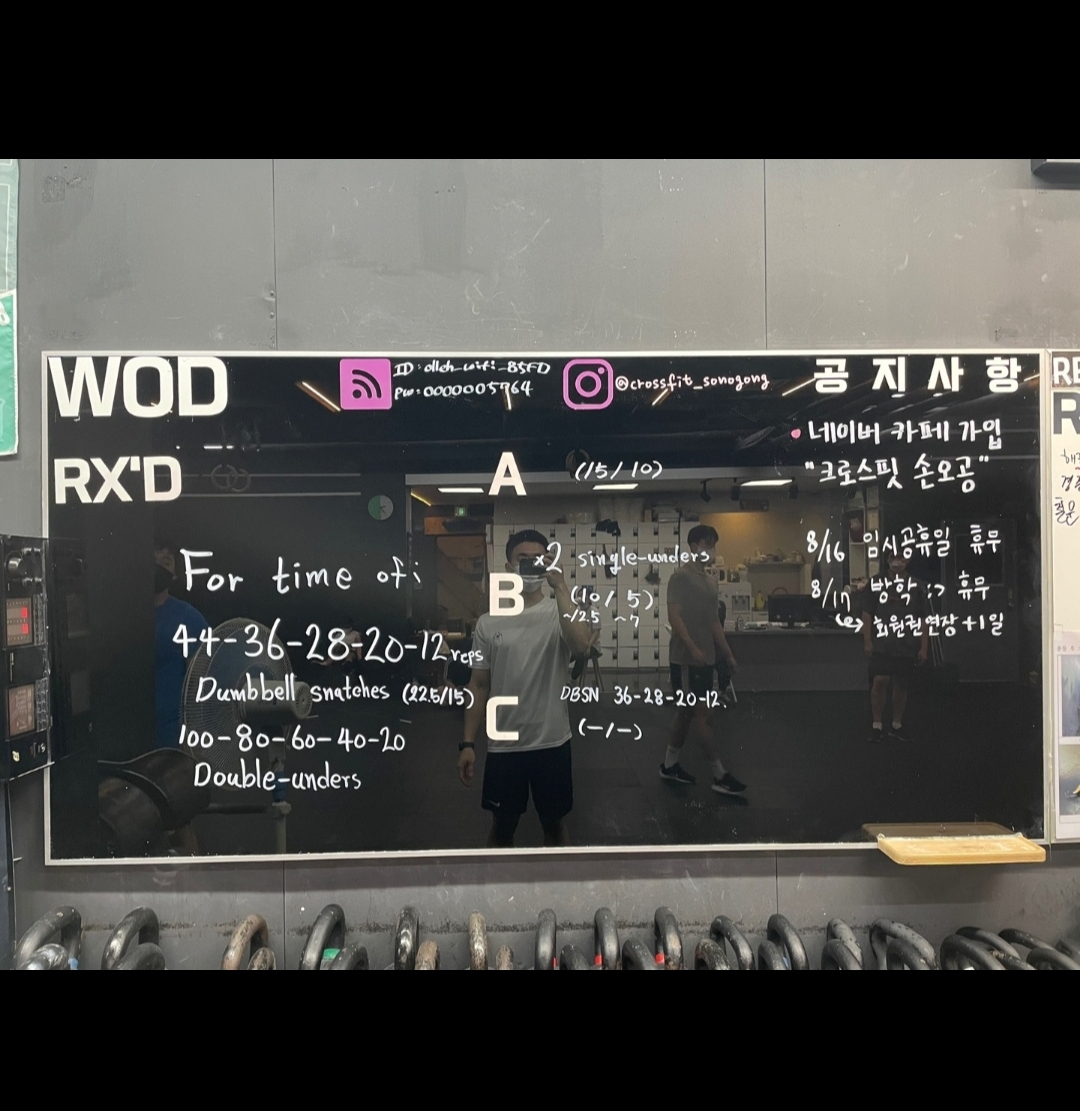 WOD
ID: olleh_wifi_85FD
PW: 0000005764
@crossfit_sonogong
RX'D
For time of:
44-36-28-20-12 reps
Dumbbell snatches (22.5/15)
100-80-60-40-20
Double-unders
A
(15/10)
B
x2 single-unders
(10/5)
~12.5 ~7
C
DBSN 36-28-20-12.
(-/-)
공지사항
• 네이버 카페 가입
"크로스핏 손오공"
8/16 임시공휴일 휴무
8/17 방학 :> 휴무
↪ 회원권 연장 +1일
RE
R